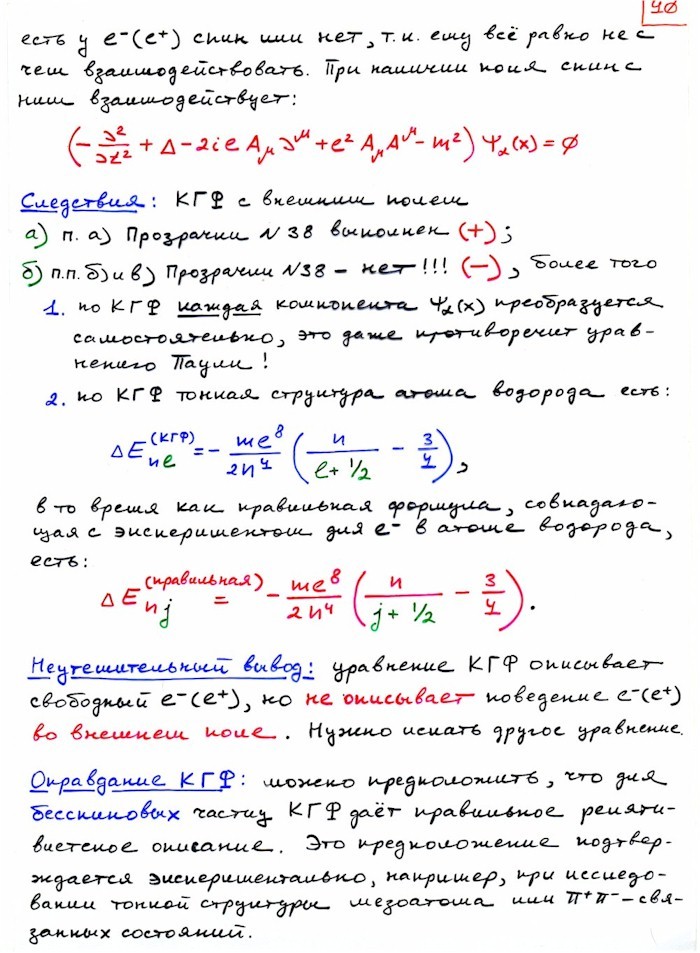 40
есть у e⁻(e⁺) спин или нет, т.к. ему всё равно не с
чем взаимодействовать. При наличии поля спин с
ним взаимодействует:
(-∂²/∂t² + Δ - 2ieA_μ∂^μ + e²A_μA^μ - m²) Ψ_α(x) = 0
Следствия: КГФ с внешним полем
а) п. а) Прозрачки №38 выполнен (+);
б) п.п. б) и в) Прозрачки №38 - нет!!! (-), более того
1. по КГФ каждая компонента Ψ_α(x) преобразуется
самостоятельно, это даже противоречит урав-
нению Паули!
2. по КГФ тонкая структура атома водорода есть:
ΔE_{ne}^{(КГФ)} = - me⁸/2n⁴ (n/(ℓ + 1/2) - 3/4),
в то время как правильная формула, совпадаю-
щая с экспериментом для e⁻ в атоме водорода,
есть:
ΔE_{nj}^{(правильная)} = - me⁸/2n⁴ (n/(j + 1/2) - 3/4).
Неутешительный вывод: уравнение КГФ описывает
свободный e⁻(e⁺), но не описывает поведение e⁻(e⁺)
во внешнем поле. Нужно искать другое уравнение.
Оправдание КГФ: можно предположить, что для
бесспиновых частиц КГФ даёт правильное реляти-
вистское описание. Это предположение подтвер-
ждается экспериментально, например, при исследо-
вании тонкой структуры мезоатома или π⁺π⁻-свя-
занных состояний.